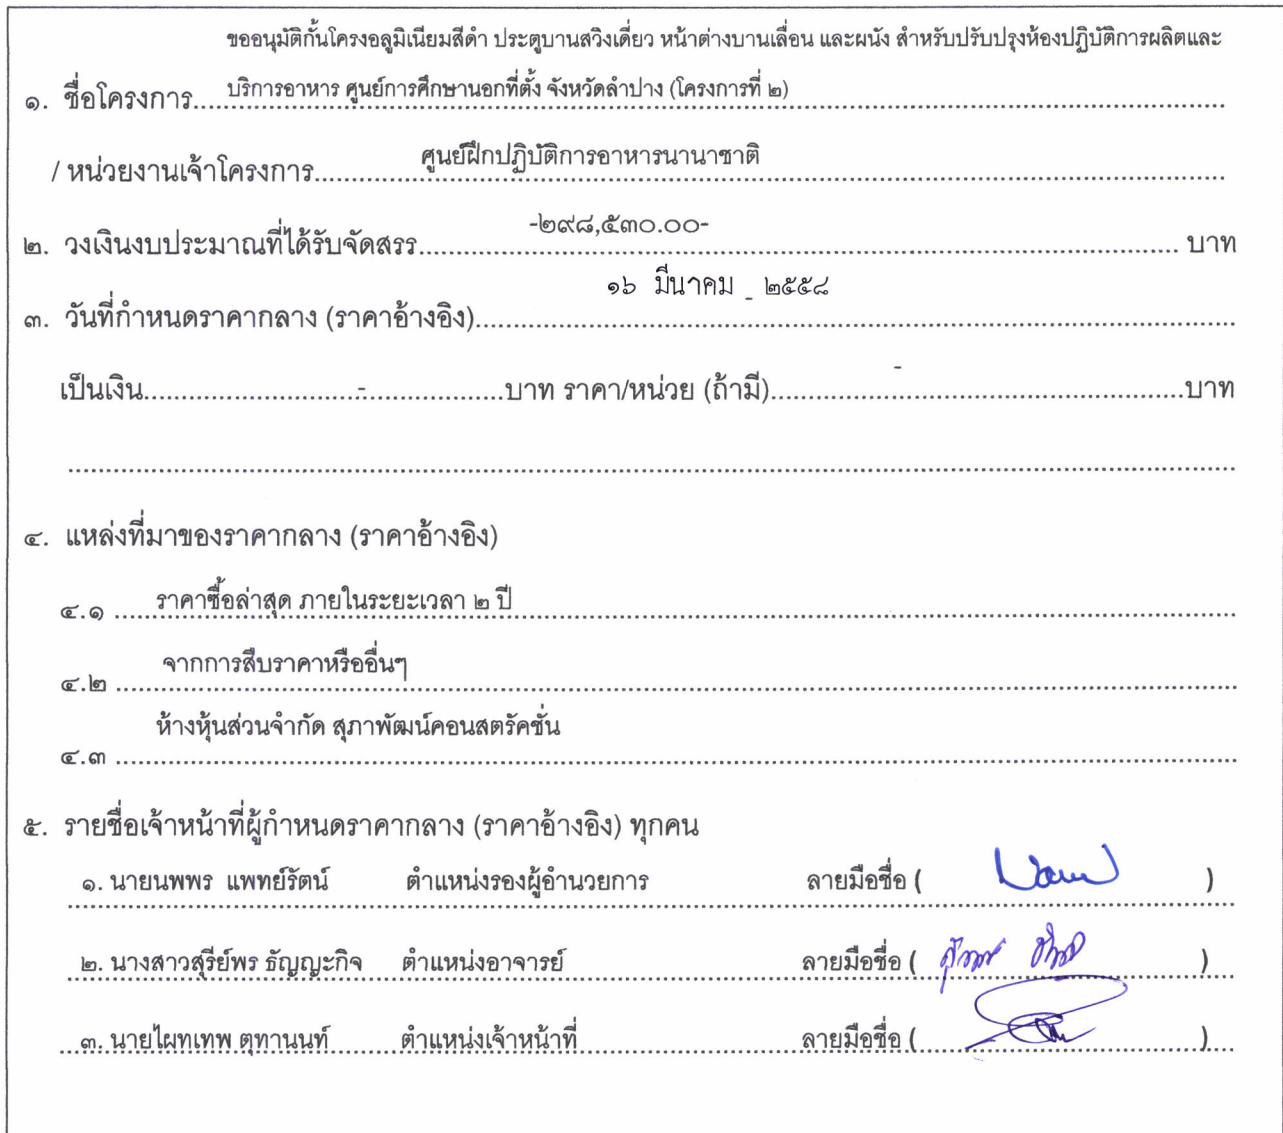 ขออนุมัติกั้นโครงอลูมิเนียมสีดำ ประตูบานสวิงเดี่ยว หน้าต่างบานเลื่อน และผนัง สำหรับปรับปรุงห้องปฏิบัติการผลิตและ
๑. ชื่อโครงการ....บริการอาหาร ศูนย์การศึกษานอกที่ตั้ง จังหวัดลำปาง (โครงการที่ ๒)
/ หน่วยงานเจ้าโครงการ....ศูนย์ฝึกปฏิบัติการอาหารนานาชาติ
๒. วงเงินงบประมาณที่ได้รับจัดสรร....-๒๙๘,๕๓๐.๐๐-.... บาท
๑๖ มีนาคม ๒๕๕๘
๓. วันที่กำหนดราคากลาง (ราคาอ้างอิง)....-....
เป็นเงิน....-....บาท ราคา/หน่วย (ถ้ามี)....-....บาท
๔. แหล่งที่มาของราคากลาง (ราคาอ้างอิง)
๔.๑ ราคาซื้อล่าสุด ภายในระยะเวลา ๒ ปี
๔.๒ จากการสืบราคาหรืออื่นๆ
๔.๓ ห้างหุ้นส่วนจำกัด สุภาพัฒน์คอนสตรัคชั่น
๕. รายชื่อเจ้าหน้าที่ผู้กำหนดราคากลาง (ราคาอ้างอิง) ทุกคน
๑. นายนพพร แพทย์รัตน์ ตำแหน่งรองผู้อำนวยการ ลายมือชื่อ ( )
๒. นางสาวสุรีย์พร ธัญญะกิจ ตำแหน่งอาจารย์ ลายมือชื่อ ( )
๓. นายไผทเทพ ตุทานนท์ ตำแหน่งเจ้าหน้าที่ ลายมือชื่อ ( )